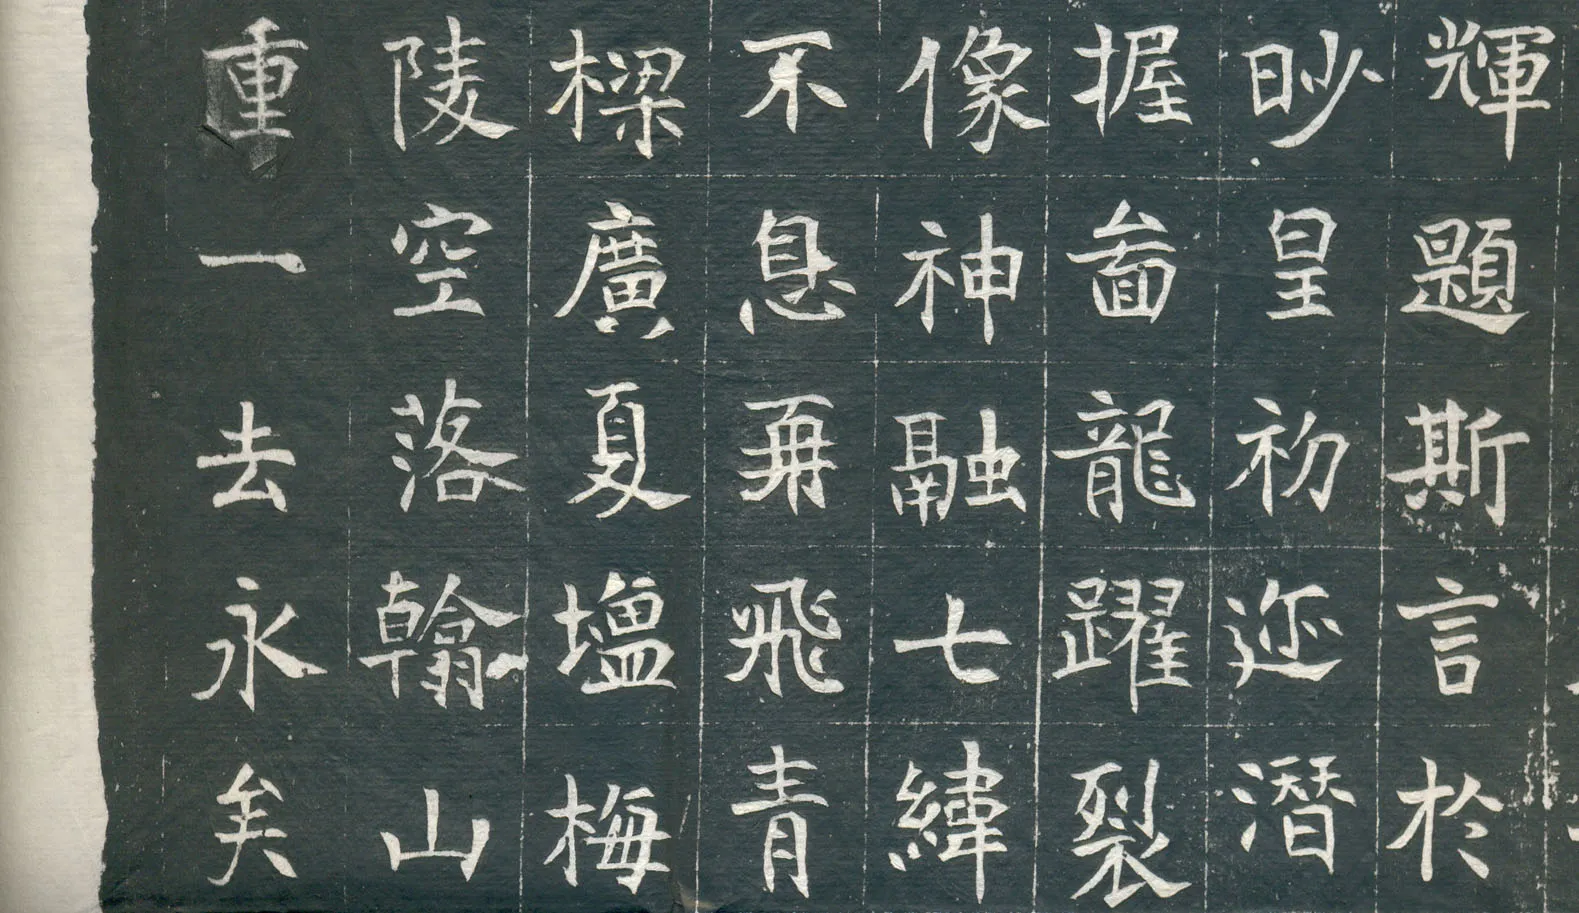 輝題斯言於
眇皇初迩潜
握啚龍躍裂
像神融七緯
不息再飛青
樑廣夏塩梅
陵空落翰山
重一去永矣